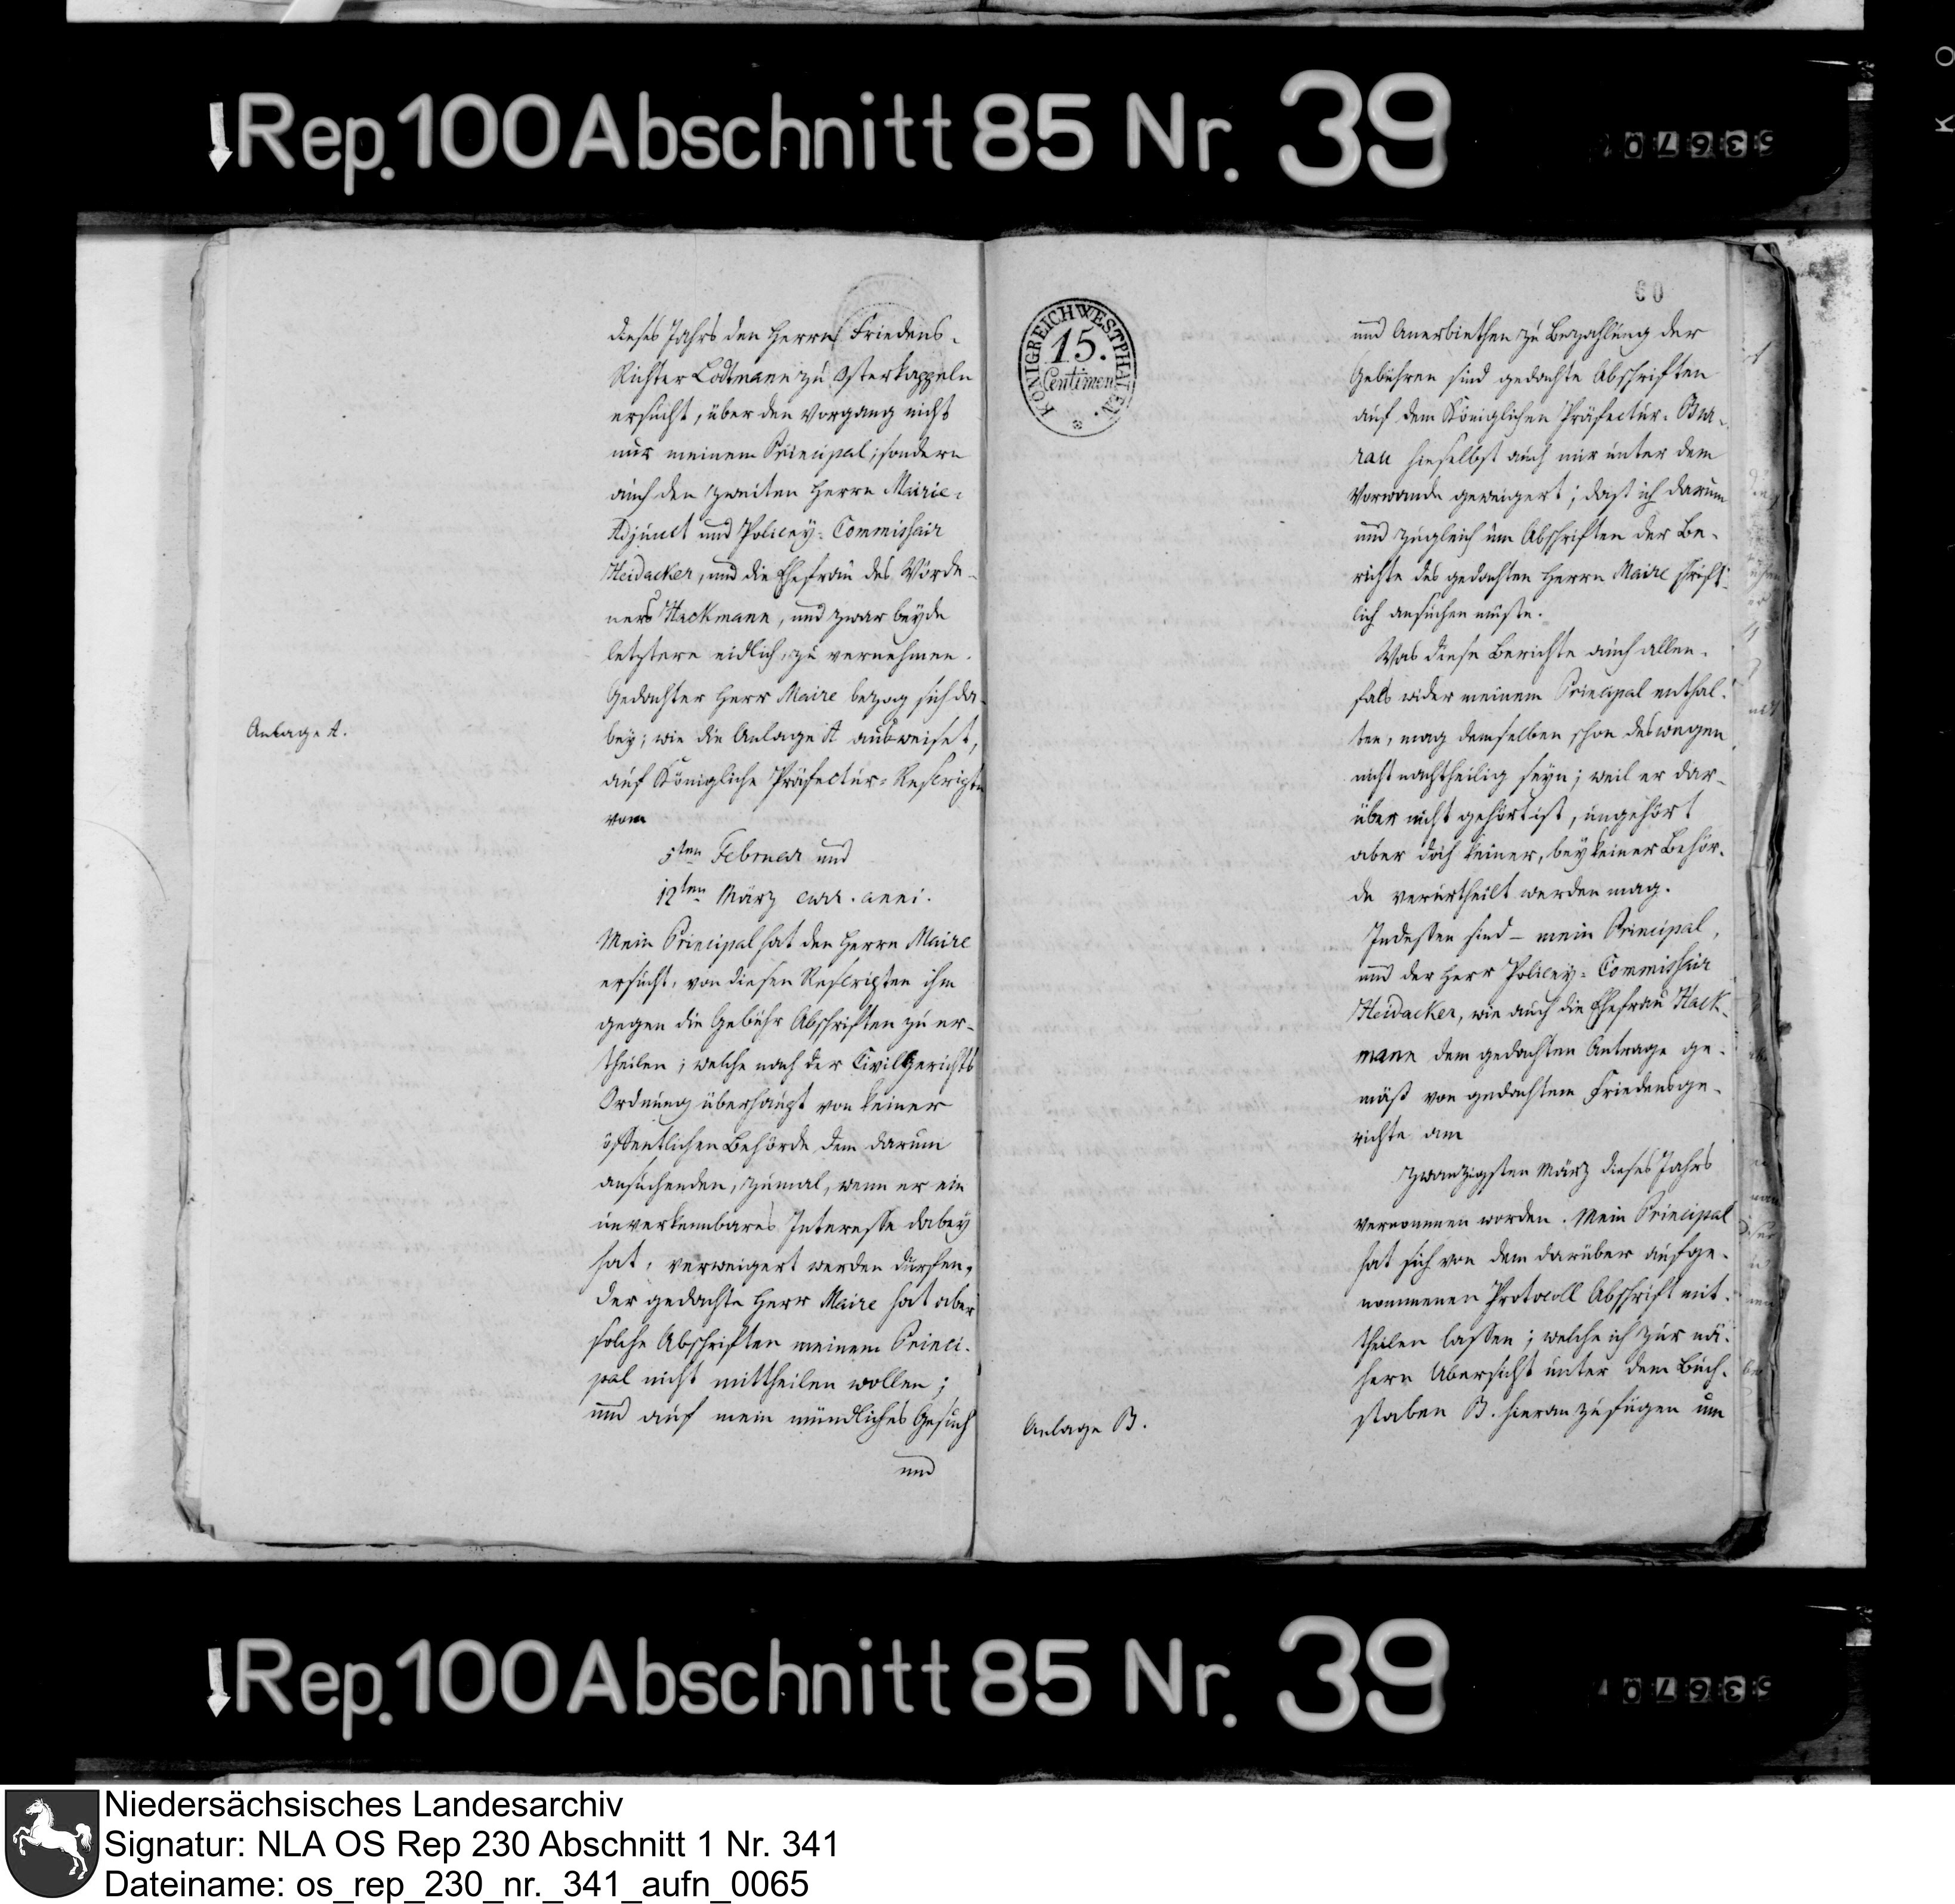 ↓Rep.100Abschnitt 85 Nr. 39
dieses Jahrs den Herrn Friedens-
Richter Lodtmann zu Osterkappeln
ersucht, über den Vorgang nicht
nur meinem Principal; sondern
auch den zweiten Herrn Mairie-
Adjunct und Policey-Commissair
Heidacker, und die Ehefrau des Vörde-
ners Hackmann, und zwar beyde
letztere eidlich, zu vernehmen.
Gedachter Herr Maire bezog sich da-
bey; wie die Anlage A ausweiset,
auf Königliche Präfectur-Rescripte
vom
5ten Februar und
12ten März curr. anni.
Mein Principal hat den Herrn Maire
ersucht, von diesen Rescripten ihm
gegen die Gebühr Abschriften zu er-
theilen; welche nach der Civilgerichts
Ordnung überhaupt von keiner
öffentlichen Behörde dem darum
ansuchenden, zumal, wenn er ein
unverkennbares Interesse dabey
hat, verweigert werden dürfen,
der gedachte Herr Maire hat aber
solche Abschriften meinem Princi-
pal nicht mittheilen wollen;
und auf mein mündliches Gesuch
und
Anlage A.
KÖNIGREICH WESTPHALEN.
15.
Centimen
60
und Anerbiethen zu Bezahlung der
Gebühren sind gedachte Abschriften
auf dem Königlichen Präfectur-Bur-
rau hieselbst auch mir unter dem
Vorwande geweigert; daß ich darum
und zugleich um Abschriften der Be-
richte des gedachten Herrn Maire schrift-
lich ansuchen müßte.
Was diese Berichte auch allen-
fals wider meinem Principal enthal-
ten, mag demselben schon deswegen
nicht nachtheilig seyn; weil er dar-
über nicht gehört ist, ungehört
aber doch keiner, bey keiner Behör-
de verurtheilt werden mag.
Indessen sind - mein Principal,
und der Herr Policey-Commissair
Heidacker, wie auch die Ehefrau Hack-
mann dem gedachten Antrage ge-
mäß von gedachtem Friedensge-
richte am
zwanzigsten März dieses Jahrs
vernommen worden. Mein Principal
hat sich von dem darüber aufge-
nommenen Protocoll Abschrift mit-
theilen lassen; welche ich zur nä-
hern Übersicht unter dem Buch-
staben B. hieran zu fügen um
Anlage B.
↓Rep.100Abschnitt 85 Nr. 39
Niedersächsisches Landesarchiv
Signatur: NLA OS Rep 230 Abschnitt 1 Nr. 341
Dateiname: os_rep_230_nr._341_aufn_0065